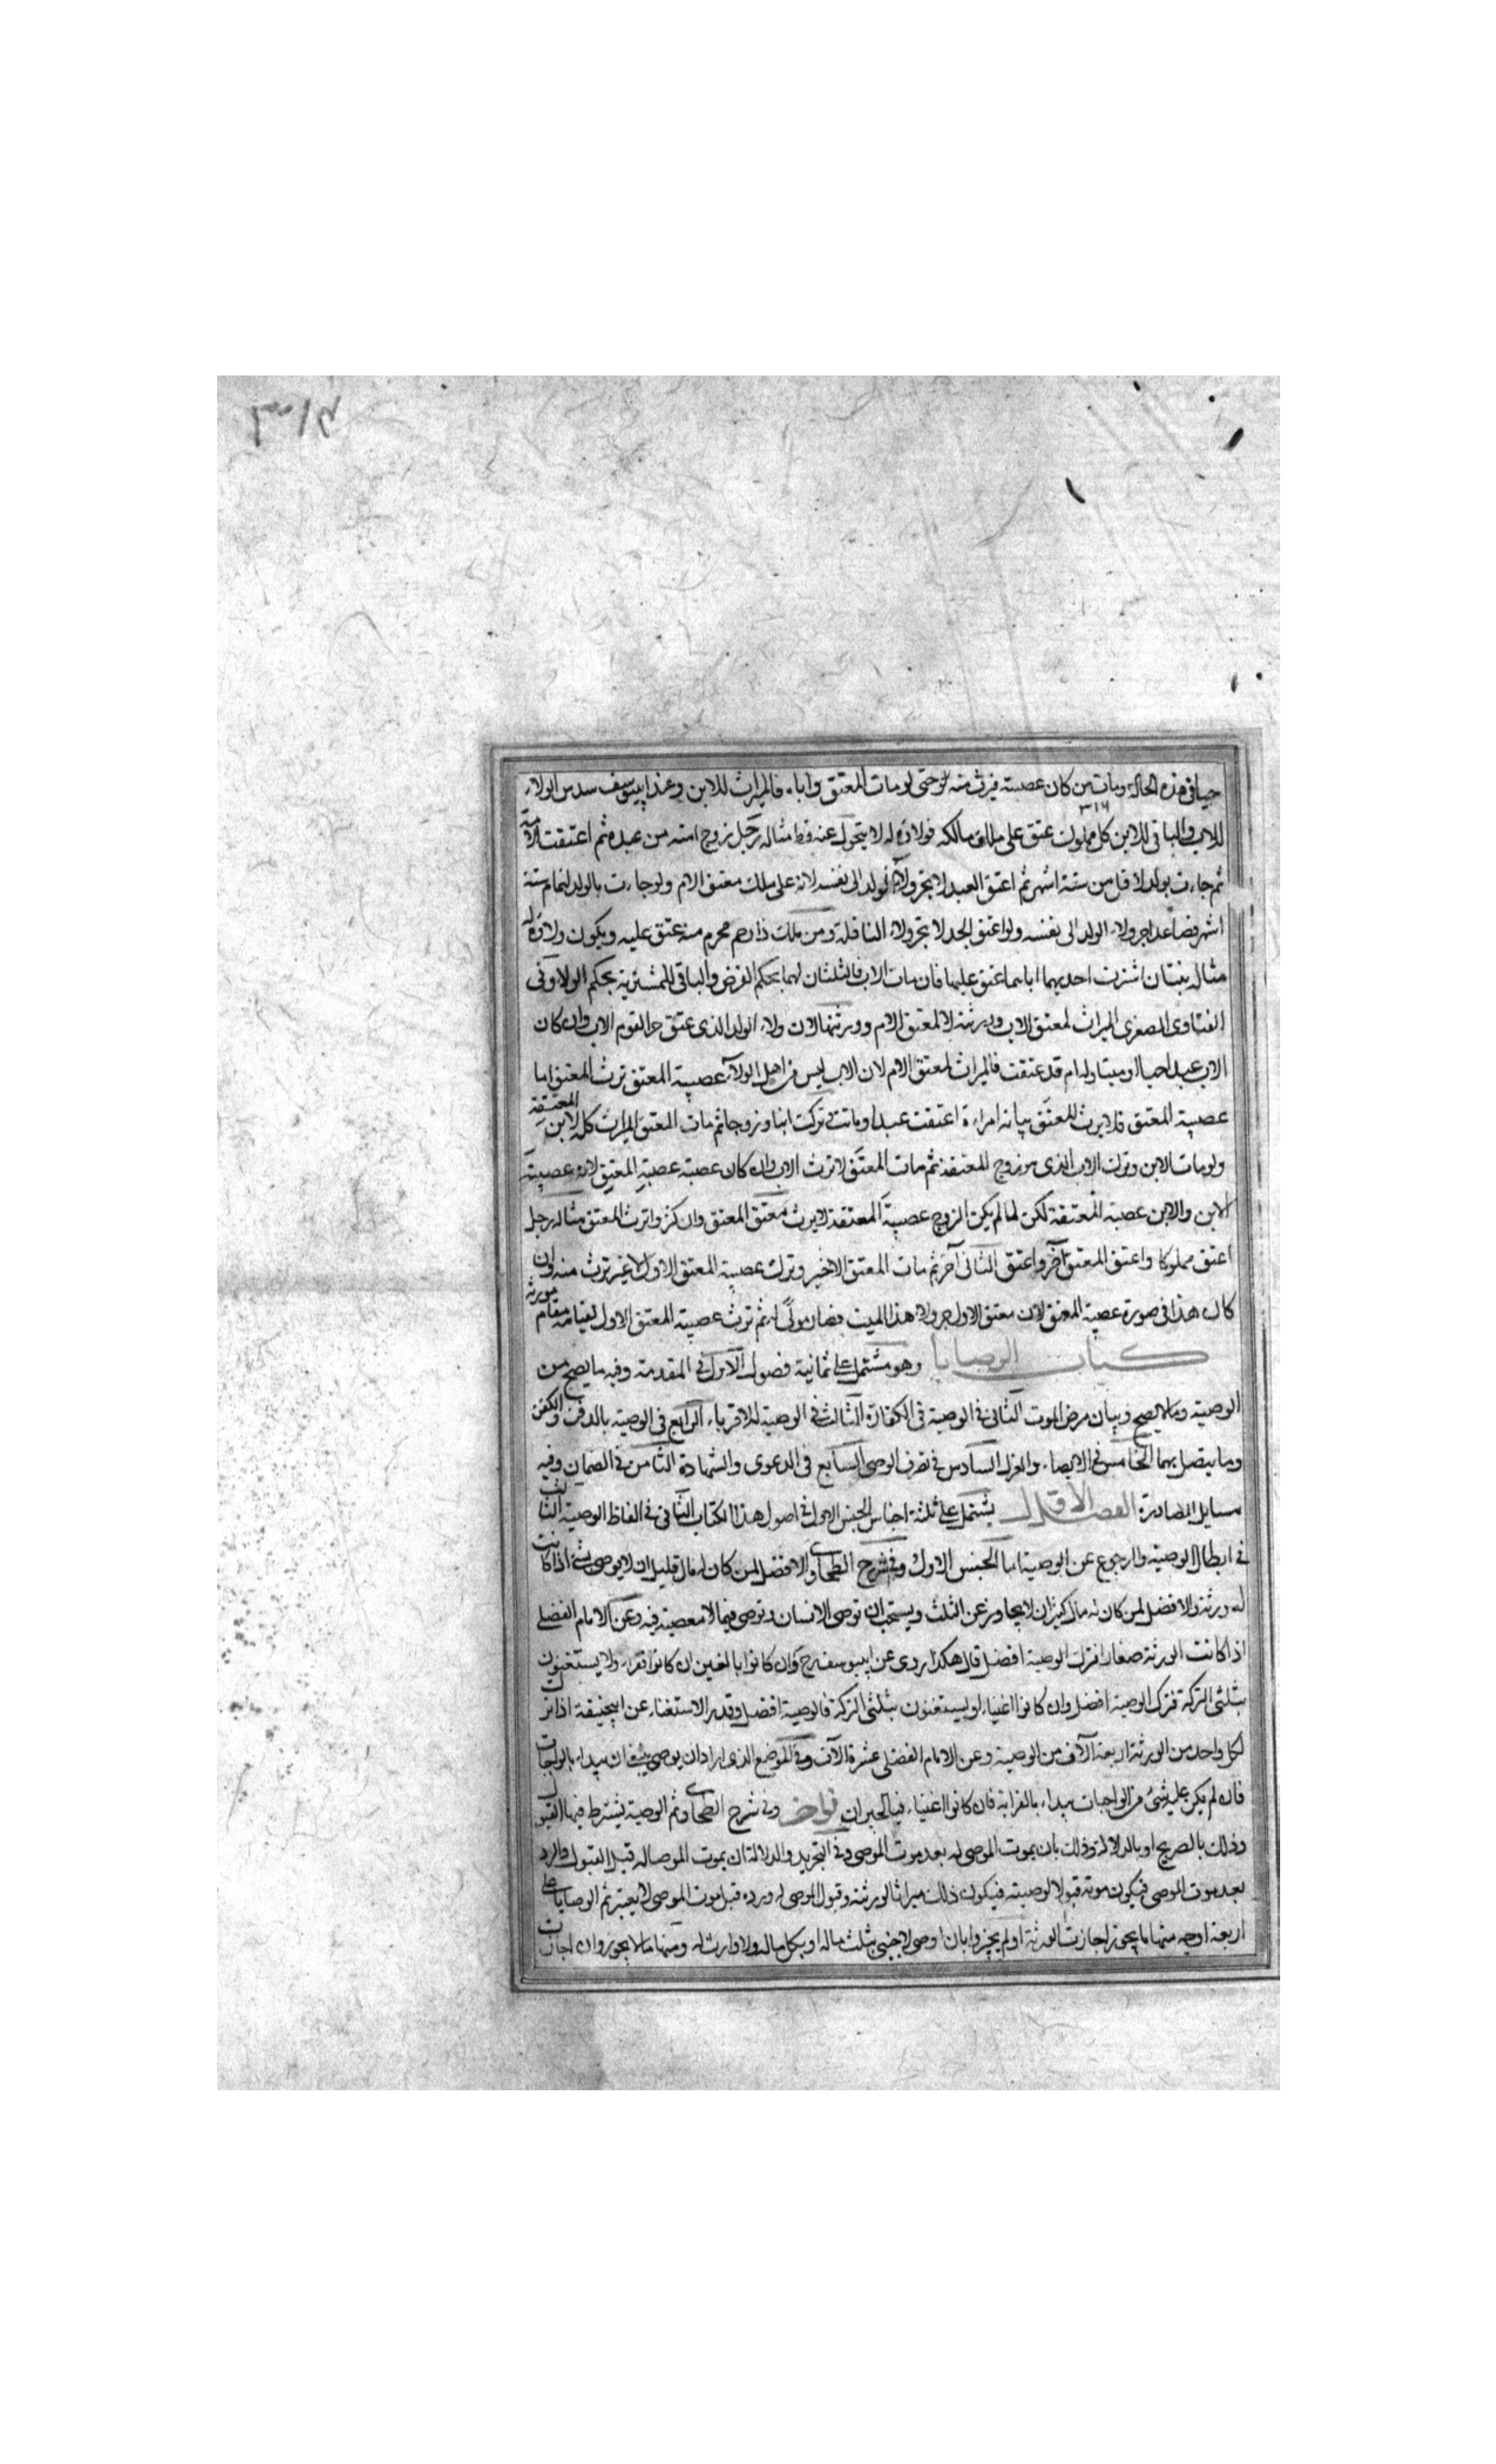 حيا في هذه الحالة ومات من كان عصبته فيرث منه لو حتى لو مات المعتق وأباه فالميراث للابن وعند ابييوسف سدس الولاء
للاب والباقي للابن كل مملوك عتق على ملك مالكه فولاؤه له لا يتحول عنه قط مثاله رجل زوج امته من عبده ثم اعتقت الامة
ثم جاءت بولد لاقل من ستة اشهر ثم اعتق العبد لا يجر ولاء الولد الى نفسه لانه على ملك معتق الام ولو جاءت بالولد لتمام ستة
اشهر فصاعدا جر ولاء الولد الى نفسه ولو اعتق الجد لا يجر ولاء النافلة ومن ملك ذا رحم محرم منه عتق عليه ويكون ولاؤه له
مثاله بنتان اشترت احديهما اباهما عتق عليها فان مات الاب فالثلثان لهما بحكم الفرض والباقي للمشترية بحكم الولاء وفي
الفتاوى الصغرى الميراث لمعتق الاب وورثته لا لمعتق الام وورثتها لان ولاء الولد الذي عتق حر لقوم الاب وان كان
الاب عبدا حيا او ميتا وله ام قد عتقت فالميراث لمعتق الام لان الاب ليس من اهل الولاء عصبة المعتق ترث المعتق اما
عصبة عصبة المعتق فلا يرث المعتق بيانه امراءة اعتقت عبدا وماتت تركت ابنا وزوجا ثم مات المعتق الميراث كله لابن المعتقة
ولو مات الابن وترك الاب الذي هو زوج المعتقة ثم مات المعتق لا ترث الاب وان كان عصبة عصبة المعتق لانه عصبة
الابن والابن عصبة المعتقة لكن لما لم يكن الزوج عصبة المعتقة لا يرث معتق المعتق وان كثروا ترث المعتق مثاله رجل
اعتق مملوكا واعتق المعتق آخر واعتق الثاني آخر ثم مات المعتق الاخير وترك عصبة المعتق الاول لا غير ترث منه وان
كان هذا في صورة عصبة المعتق لان معتق الاول جر ولاء هذا الميت فصار مولى له ثم ترث عصبة المعتق الاول لقيامه مقام مورثه
كتاب الوصايا وهو مشتمل على ثمانية فصول الاول في المقدمة وفيه ما يصح من
الوصية وما لا يصح وبيان مرض الموت الثاني في الوصية في الكفارة الثالث في الوصية للاقرباء الرابع في الوصية بالدفن والكفن
وما يتصل بهما الخامس في الايصاء والعزل السادس في تصرف الوصي السابع في الدعوى والشهادة الثامن في الضمان وفيه
مسايل المصادرة الفصل الاول يشتمل على ثلثة اجناس الجنس الاول في اصول هذا الكتاب الثاني في الفاظ الوصية الثالث
في ابطال الوصية والرجوع عن الوصية اما الجنس الاول وفي شرح الطحاوي والافضل لمن كان له مال قليل ان لا يوصى بشئ اذا كانت
له ورثة والافضل لمن كان له مال كثير ان لا يجاوز عن الثلث ويستحب ان توصى الانسان وتوصى فيما لا معصية فيه وعن الامام الفضلي
اذا كانت الورثة صغارا فترك الوصية افضل قال هكذا روى عن ابييوسف رح وان كانوا بالغين ان كانوا فقراء ولا يستغنون
بثلثي التركة فترك الوصية افضل وان كانوا اغنياء او يستغنون بثلثي التركة فالوصية افضل وقدر الاستغناء عن ابيحنيفة اذا ترك
لكل واحد من الورثة اربعة آلاف من الوصية وعن الامام الفضلي عشرة الآف وفي الموضع الذي اراد ان يوصى ينبغي ان يبداء بالواجبات
فان لم يكن عليه شئ من الواجبات يبداء بالقرابة فان كانوا اغنياء فبالجيران وفي شرح الطحاوي ثم الوصية يشترط فيها القبول
وذلك بالصريح او بالدلالة وذلك بان يموت الموصى له بعد موت الموصي وفي التجريد والدلالة ان يموت الموصى له قبل القبول والرد
بعد موت الموصي فيكون موته قبولا لوصيته فيكون ذلك ميراثا لورثته وقبول الموصى له ورده قبل موت الموصي لا يعتبر ثم الوصايا على
اربعة اوجه منها ما يجوز اجازت الورثة او لم يجيزوا بان اوصى لاجنبي بثلث ماله او بكل ماله ولا وارث له ومنها ما لا يجوز وان اجازت